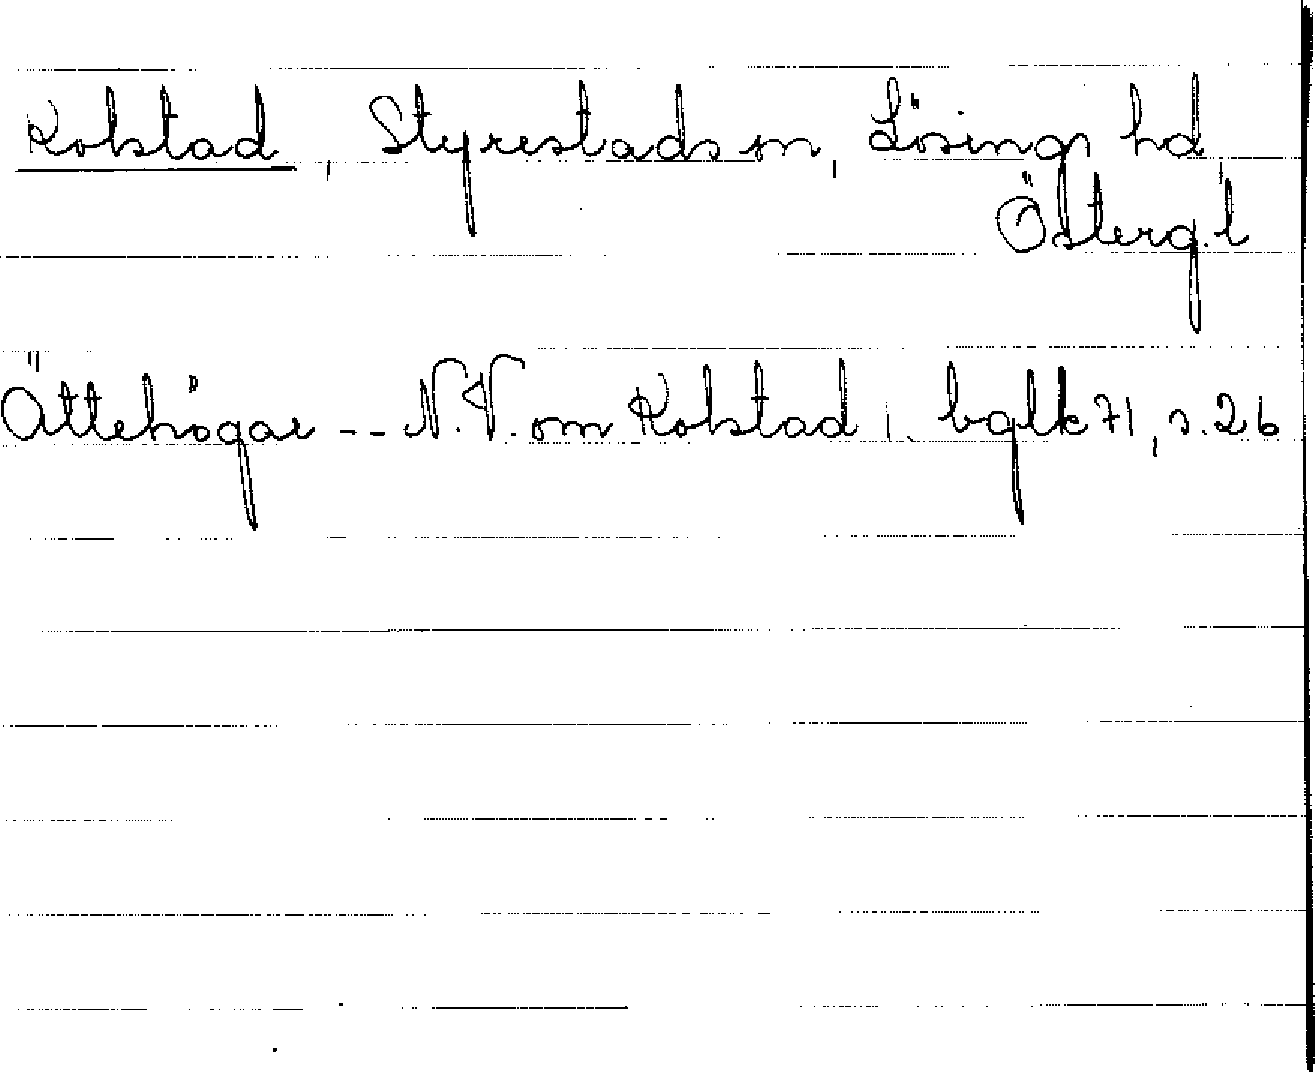 Kolstad, Styrestads sn, Lösings hd,
Österg. l
Ättehögar -- N.V. om Kolstad, bglk 71, s. 26